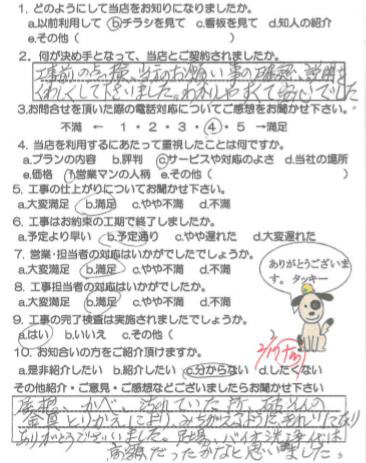 1. どのようにして当店をお知りになりましたか。
a.以前利用して b.チラシを見て c.看板を見て d.知人の紹介
e.その他（ ）
2. 何が決め手となって、当店とご契約されましたか。
工事前の点検、当方のお願い事の確認、説明を
くわしくして下さいました。わかりやすくて安心でした
3.お問合せを頂いた際の電話対応についてご感想をお聞かせ下さい。
不満 ← 1・2・3・4・5 →満足
4. 当店を利用するにあたって重視したことは何ですか。
a.プランの内容 b.評判 c.サービスや対応のよさ d.当社の場所
e.価格 f.営業マンの人柄 e.その他（ ）
5. 工事の仕上がりについてお聞かせ下さい。
a.大変満足 b.満足 c.やや不満 d.不満
6. 工事はお約束の工期で終了しましたか。
a.予定より早い b.予定通り c.やや遅れた d.大変遅れた
7. 営業・担当者の対応はいかがでしたでしょうか。
a.大変満足 b.満足 c.やや不満 d.不満
8. 工事担当者の対応はいかがでしたか。
a.大変満足 b.満足 c.やや不満 d.不満
ありがとうございま
す。 タッキー
9. 工事の完了検査は実施されましたでしょうか。
a.はい b.いいえ c.その他（
10. お知合いの方をご紹介頂けますか。
a.是非紹介したい b.紹介したい c.分からない d.したくない
その他紹介・ご意見・ご感想などございましたらお聞かせ下さい
屋根、かべ、汚れていた所、
金具とりかえにより、みちがえるようにきれいになり
ありがとうございました。足場、バイオ洗浄代は
高額だったかなと思いました。